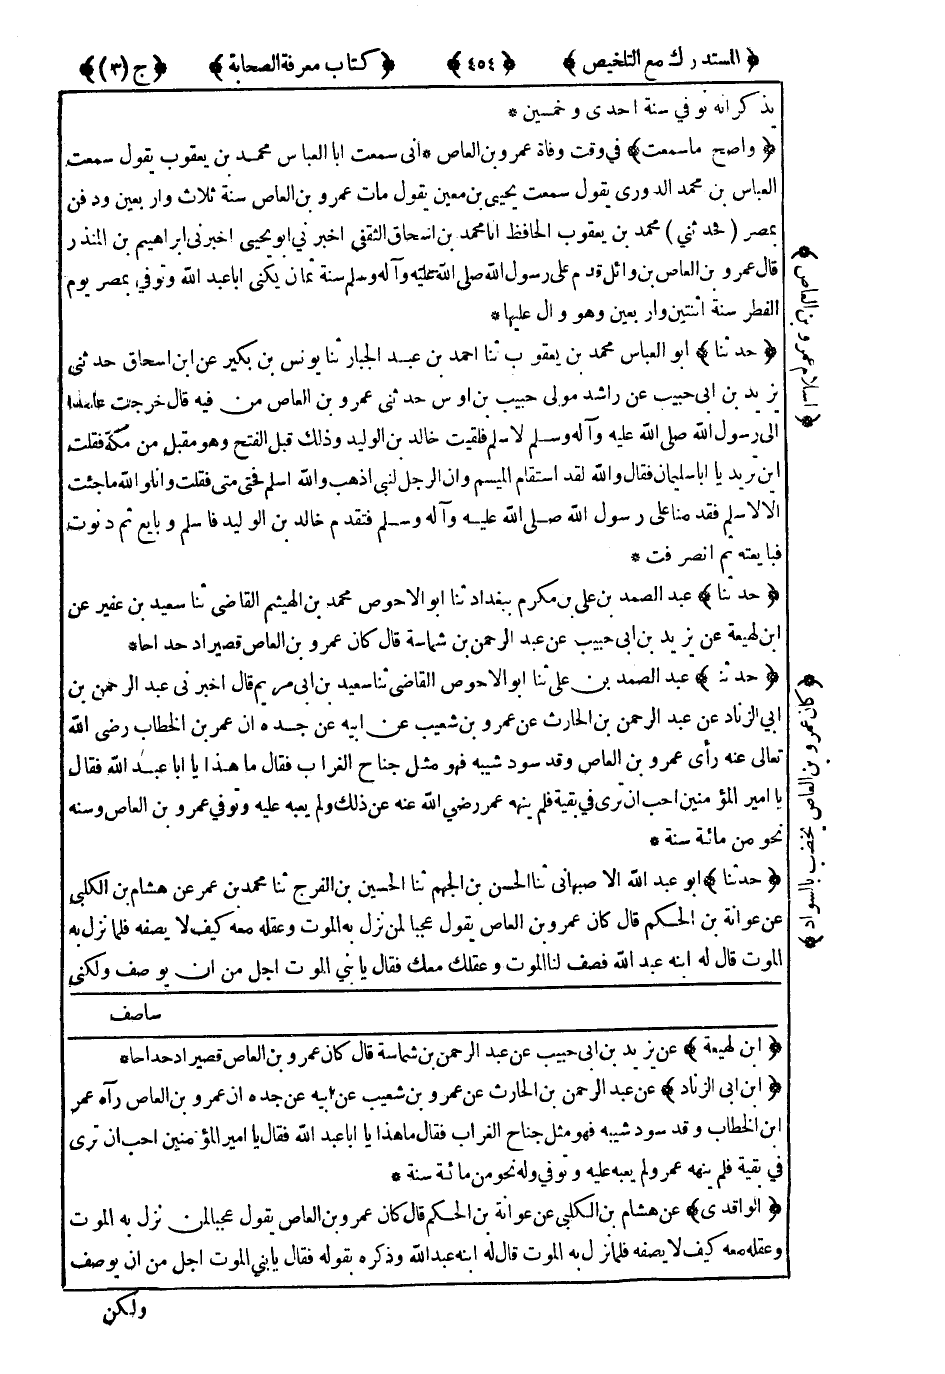 ﴿ المستدرك مع التلخيص ﴾ ﴿ ٤٥٤ ﴾ ﴿ كتاب معرفة الصحابة ﴾ ﴿ ج (٣) ﴾
يذكر انه توفي سنة احدى وخمسين *
﴿ واصح ماسمعت ﴾ في وقت وفاة عمرو بن العاص * انى سمعت ابا العباس محمد بن يعقوب يقول سمعت
العباس بن محمد الدورى يقول سمعت يحيى بن معين يقول مات عمرو بن العاص سنة ثلاث واربعين ودفن
بمصر ( فحدثني ) محمد بن يعقوب الحافظ انا محمد بن اسحاق الثقفي اخبرني ابو يحيى اخبرنى ابراهيم بن المنذر
قال عمرو بن العاص بن وائل قدم على رسول الله صلى الله عليه وآله وسلم سنة ثمان يكنى ابا عبد الله وتوفي بمصر يوم
الفطر سنة اثنتين واربعين وهو وال عليها *
﴿ حدثنا ﴾ ابو العباس محمد بن يعقوب ثنا احمد بن عبد الجبار ثنا يونس بن بكير عن ابن اسحاق حدثنى
يزيد بن ابى حبيب عن راشد مولى حبيب بن اوس حدثنى عمرو بن العاص من فيه قال خرجت عامدا
الى رسول الله صلى الله عليه وآله وسلم لاسلم فلقيت خالد بن الوليد وذلك قبل الفتح وهو مقبل من مكة فقلت
اين تريد يا ابا سليمان فقال والله لقد استقام الميسم وان الرجل لنبي اذهب والله اسلم فحتى متى فقلت وانا والله ماجئت
الا لاسلم فقدمنا على رسول الله صلى الله عليه وآله وسلم فتقدم خالد بن الوليد فاسلم وبايع ثم دنوت
فبايعته ثم انصرفت *
﴿ حدثنا ﴾ عبد الصمد بن على بن مكرم ببغداد ثنا ابو الاحوص محمد بن الهيثم القاضى ثنا سعيد بن عفير عن
ابن لهيعة عن يزيد بن ابى حبيب عن عبد الرحمن بن شماسة قال كان عمرو بن العاص قصيرا دحداحا *
﴿ حدثنا ﴾ عبد الصمد بن على ثنا ابو الاحوص القاضى ثنا سعيد بن ابى مريم قال اخبرنى عبد الرحمن بن
ابي الزناد عن عبد الرحمن بن الحارث عن عمرو بن شعيب عن ابيه عن جده ان عمر بن الخطاب رضى الله
تعالى عنه رأى عمرو بن العاص وقد سود شيبه فهو مثل جناح الغراب فقال ما هذا يا ابا عبد الله فقال
يا امير المؤمنين احب ان ترى في بقية فلم ينهه عمر رضي الله عنه عن ذلك ولم يعبه عليه وتوفي عمرو بن العاص وسنه
نحو من مائة سنة *
﴿ حدثنا ﴾ ابو عبد الله الاصبهانى ثنا الحسن بن الجهم ثنا الحسين بن الفرج ثنا محمد بن عمر عن هشام بن الكلبي
عن عوانة بن الحكم قال كان عمرو بن العاص يقول عجبا لمن نزل به الموت وعقله معه كيف لا يصفه فلما نزل به
الموت قال له ابنه عبد الله فصف لنا الموت وعقلك معك فقال يا بني الموت اجل من ان يوصف ولكنى
ساصف
﴿ ابن لهيعة ﴾ عن يزيد بن ابى حبيب عن عبد الرحمن بن شماسة قال كان عمرو بن العاص قصيرا دحداحا *
﴿ ابن ابى الزناد ﴾ عن عبد الرحمن بن الحارث عن عمرو بن شعيب عن ابيه عن جده ان عمرو بن العاص رآه عمر
ابن الخطاب وقد سود شيبه فهو مثل جناح الغراب فقال ماهذا يا ابا عبد الله فقال يا امير المؤمنين احب ان ترى
في بقية فلم ينهه عمر ولم يعبه عليه وتوفي وله نحو من مائة سنة *
﴿ الواقدى ﴾ عن هشام بن الكلبي عن عوانة بن الحكم قال كان عمرو بن العاص يقول عجبا لمن نزل به الموت
وعقله معه كيف لا يصفه فلما نزل به الموت قال له ابنه عبد الله وذكره بقوله فقال يا بني الموت اجل من ان يوصف
ولكن
﴿ اسلام عمرو بن العاص ﴾
﴿ كان عمرو بن العاص يخضب بالسواد ﴾